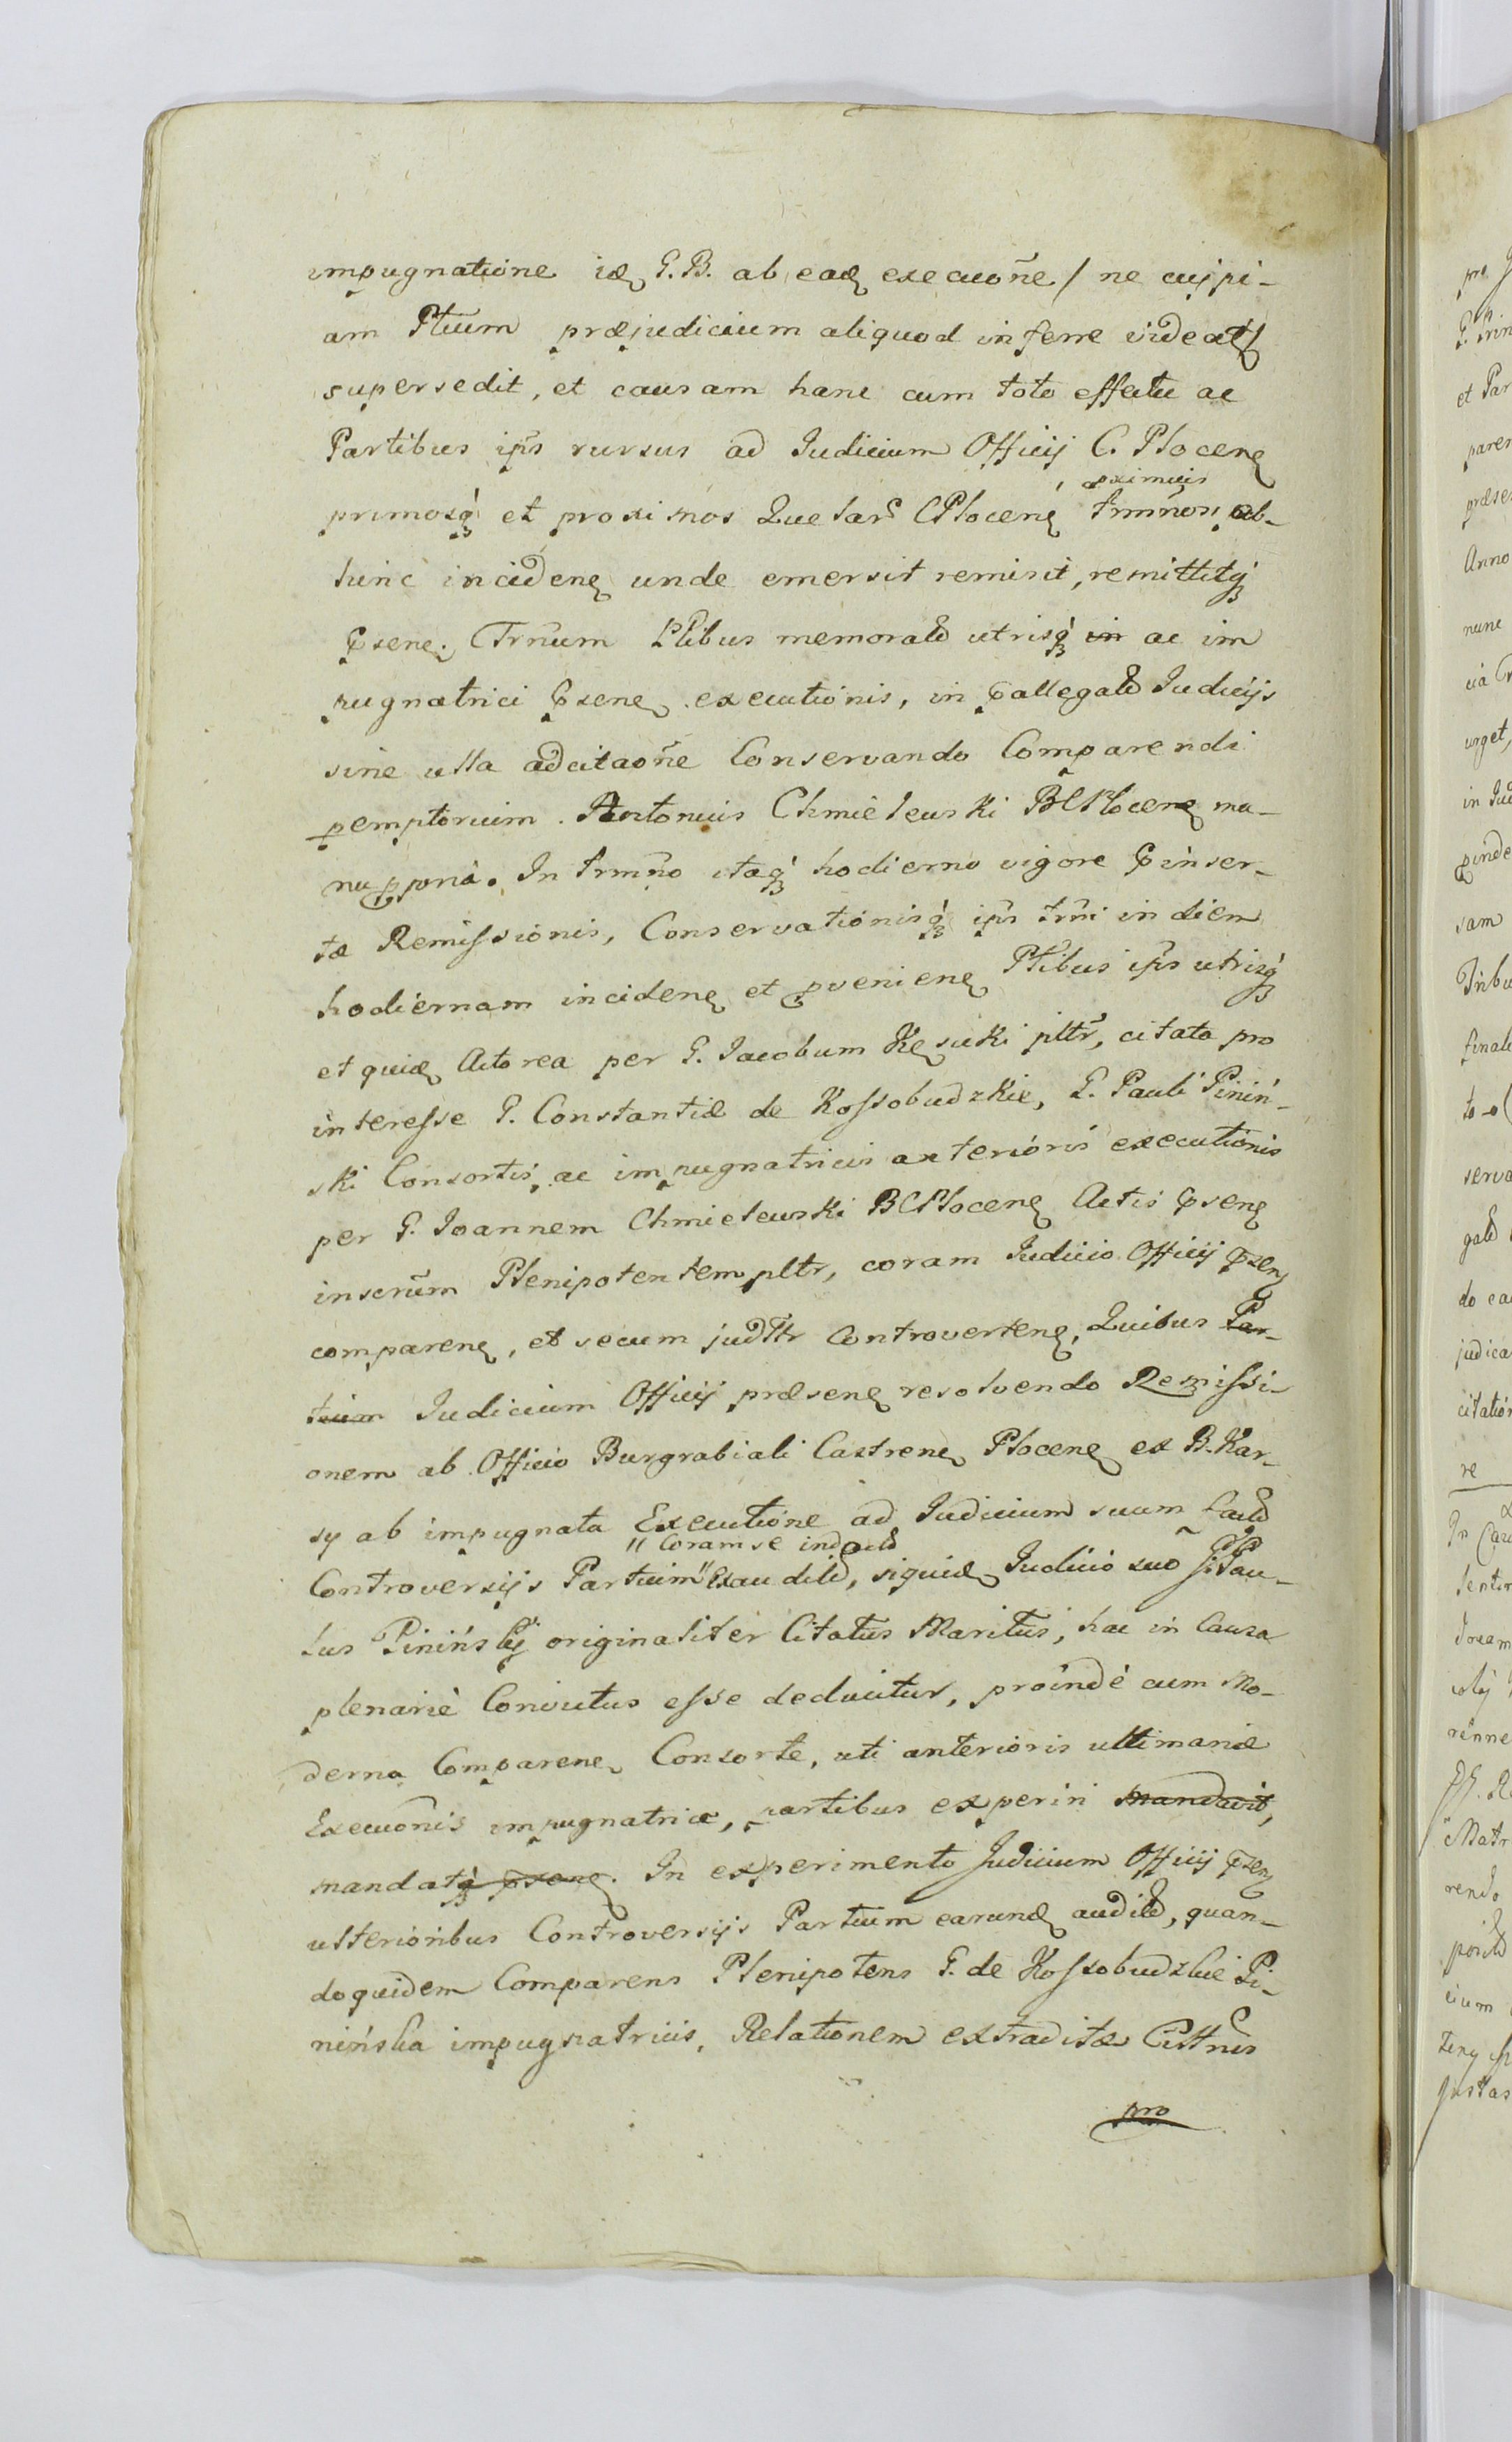 impugnatione idę G. B. ab eadę execuoñe / ne cujpi-
am Ptium præjudicium aliquod inferre videatę /
supersedit, et causam hanc cum toto effectu ac
Partibus ip̃s rursus ad Judicium Officij C. Plocenę
primosq́ et proximos Quelar̃ CPlocenę tm̃nos ab-
hinc incidenę unde emersit remisit, remittitq́
p̱senę. Trñum Ptibus memoratō utrisq́ in ac im
pugnatrici p̱senę executionis, in p̱allegatō Judicijs
sine ulla adcitaoñe Conservando Comparendi
pemptorium. Antonius Chmielewski BCPlocenę ma-
nu ppria. In trm̃no itaq́ hodierno vigore p̱inser-
tæ Remissionis, Conservationisq́ ip̃s trñi in diem
hodiernam incidenę et pvenienę Ptibus ip̃s utrisq́
et quidę Actorea per G. Jacobum Kęsicki pltr̃, citata pro
interesse G. Constantiæ de Kossobudzkie, G. Pauli Pinin-
ski Consortis, ac impugnatricis anterioris executionis
per G. Joannem Chmielewski BCPlocenę Actis p̱senę
inserũm Plenipotentem pltr, coram Judicio Officij p̱senę
comparenę, et secum judltr Controvertenę, Quibus Par-
tium Judicium Officij præsenę resolvendo Remissi-
onem ab Officio Burgrabiali Castrenę Plocenę ex B. Kar-
sy ab impugnata Executione ad Judicium suum factō
" Coram se
Controversijs Partium " Exauditō, siquidę Judicio suo G. Pau-
lus Piniński originaliter Citatus Maritus, hac in Causa
plenarie Convictus esse deducitur, proinde cum Mo-
derna Comparenę Consorte, uti anterioris ultimariæ
Execuoñis impugnatrice, partibus experiri mandavit,
mandatq́ p̱senę. In experimento Judicium Officij p̱senę
ulterioribus Controversijs Partium earundę auditō, quan-
doquidem Comparens Plenipotens G. de Kossobudzkie Pi-
nińska impugnatricis, Relationem extraditæ Citt̃nis
pro